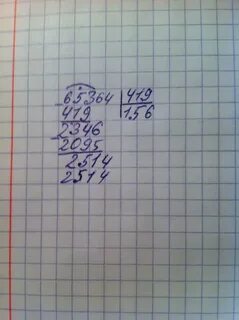 65364 419
419 156
2346
2095
2514
2514